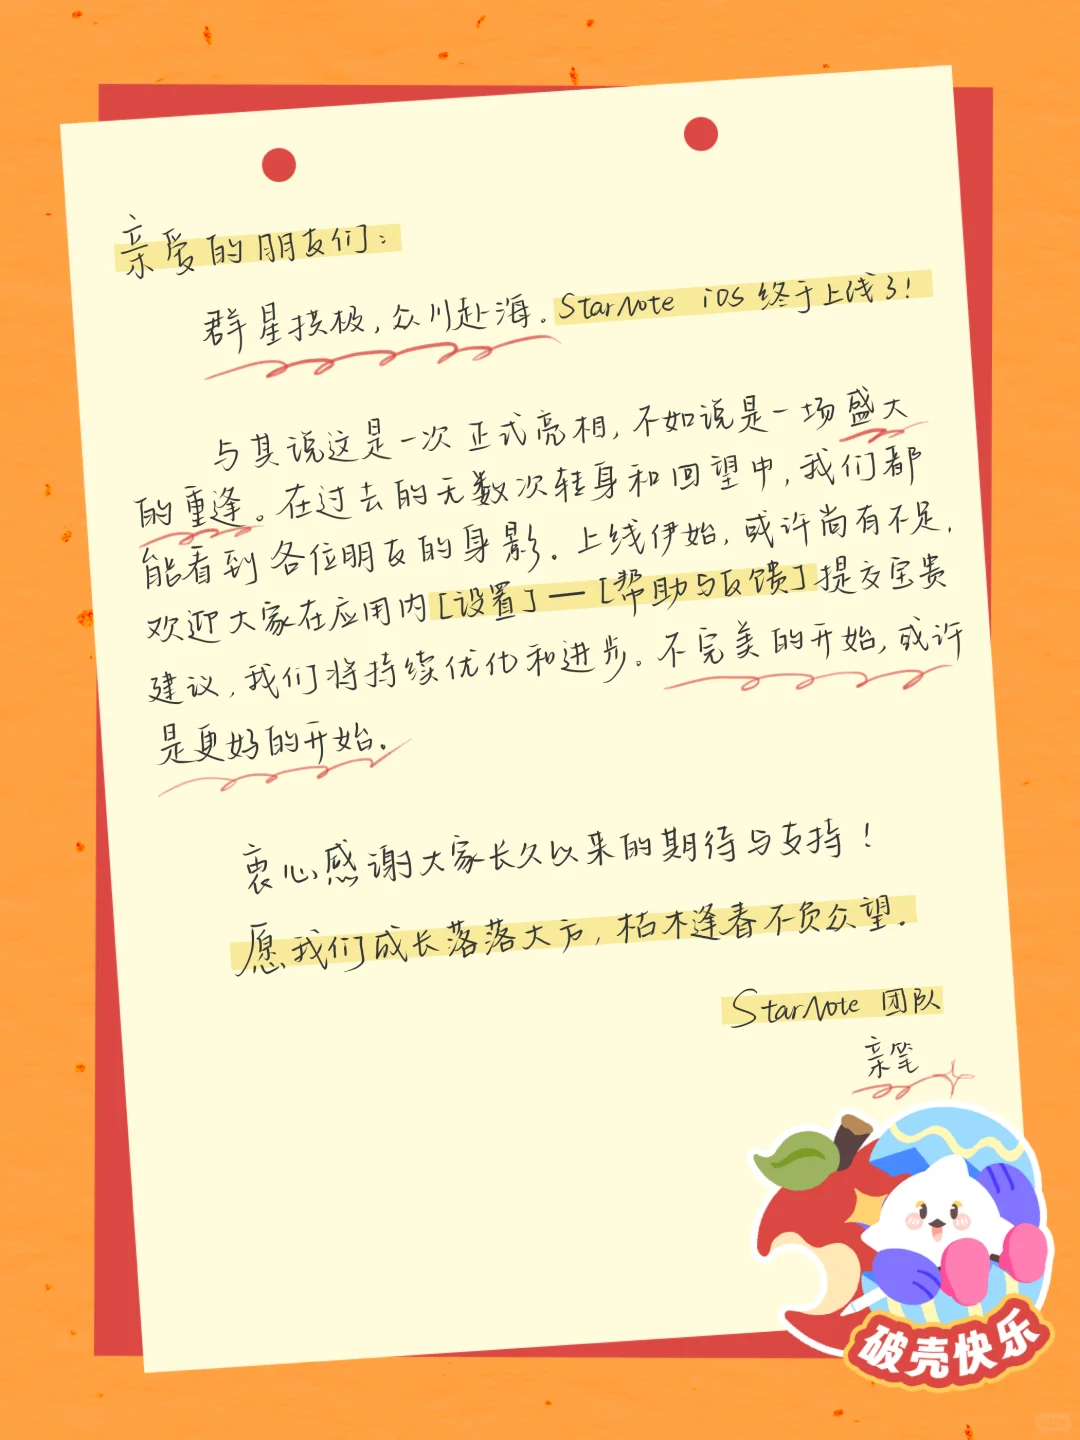 亲爱的朋友们：
群星拱极，众川赴海。StarNote iOS 终于上线了！
与其说这是一次正式亮相，不如说是一场盛大
的重逢。在过去的无数次转身和回望中，我们都
能看到各位朋友的身影。上线伊始，或许尚有不足，
欢迎大家在应用内[设置]—[帮助与反馈]提交宝贵
建议，我们将持续优化和进步。不完美的开始，或许
是更好的开始。
衷心感谢大家长久以来的期待与支持！
愿我们成长落落大方，枯木逢春不负众望。
StarNote 团队
亲笔
破壳快乐